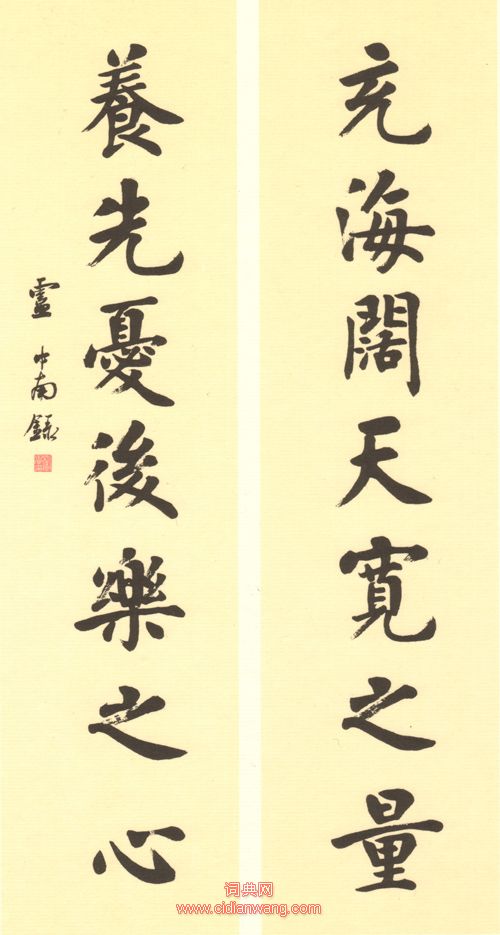 充海闊天寬之量
養先憂後樂之心
盧中南錄
词典网
www.cidianwang.com